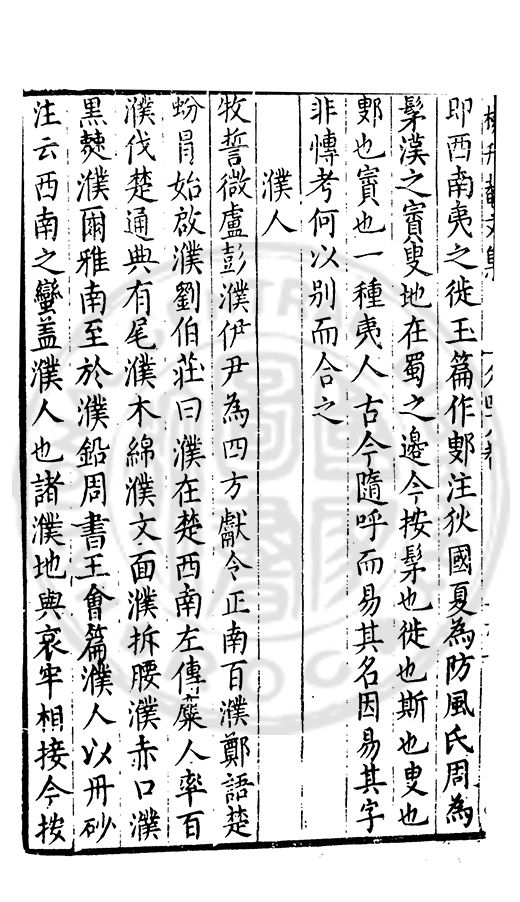 即西南夷之徙玉篇作鄋注狄國夏為防風氏周為
髳漢之賨叟地在蜀之邊今按髳也徙也斯也叟也
鄋也賨也一種夷人古今隨呼而易其名因易其字
非慱考何以别而合之
濮人
牧誓微盧彭濮伊尹為四方獻令正南百濮鄭語楚
蚡冐始啟濮劉伯莊曰濮在楚西南左傳麇人率百
濮伐楚通典有尾濮木綿濮文面濮拆腰濮赤口濮
黑僰濮爾雅南至於濮鉛周書王會篇濮人以丹砂
注云西南之蠻盖濮人也諸濮地與哀牢相接今按